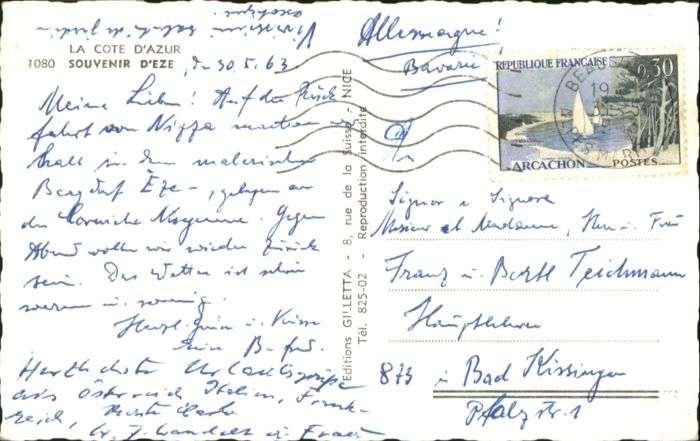 LA COTE D'AZUR
1080 SOUVENIR D'EZE
, d. 30.5.63
Meine Lieben! Auf der Rück-
fahrt von Nizza machen wir
halt in dem malerischen
Bergdorf Èze –, gelegen an
der Corniche Moyenne. Gegen
Abend wollen wir wieder zurück
sein. Das Wetter ist schön
warm u. sonnig.
Herzl. Grüße u. Küsse
Herzlichste Urlaubsgrüße
aus Österreich, Italien, Frank-
reich,
Editions GILLETTA - 8, rue de la Suisse - NICE
Tél. 825-02 - Reproduction interdite
Allemagne!
Bavière
REPUBLIQUE FRANÇAISE
0,30
ARCACHON
POSTES
An
Signor e Signora
Monsieur et Madame, Herr u. Frau
Franz u. Bertl Teichmann
Hauptlehrer
873 Bad Kissingen
Pfalzstr. 1